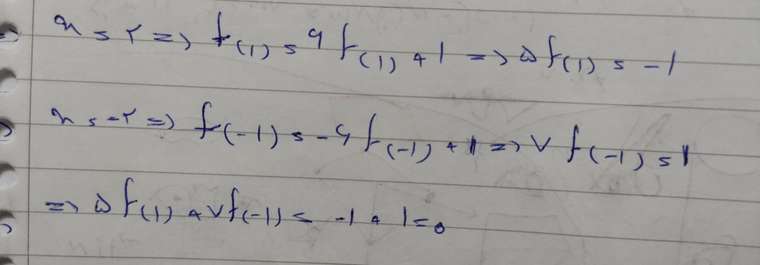 x = ۲ => f(1) = ۶ f(1) + 1 => ۵ f(1) = -1
x = -۲ => f(-1) = -۶ f(-1) + 1 => ۷ f(-1) = 1
=> ۵ f(1) + ۷ f(-1) = -1 + 1 = 0